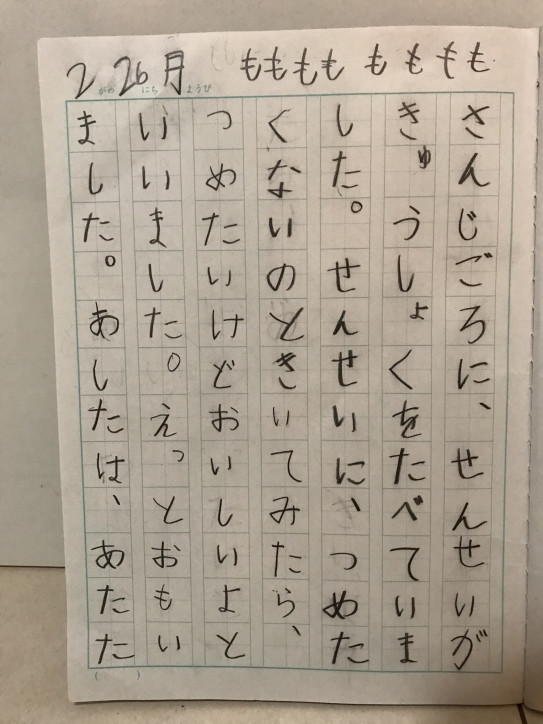 2 26 月 もももも もももも
がつ にち ようび
さんじごろに、せんせいが
きゅうしょくをたべていま
した。せんせいに、つめた
くないのときいてみたら、
つめたいけどおいしいよと
いいました。え。っとおもい
ました。あしたは、あたた